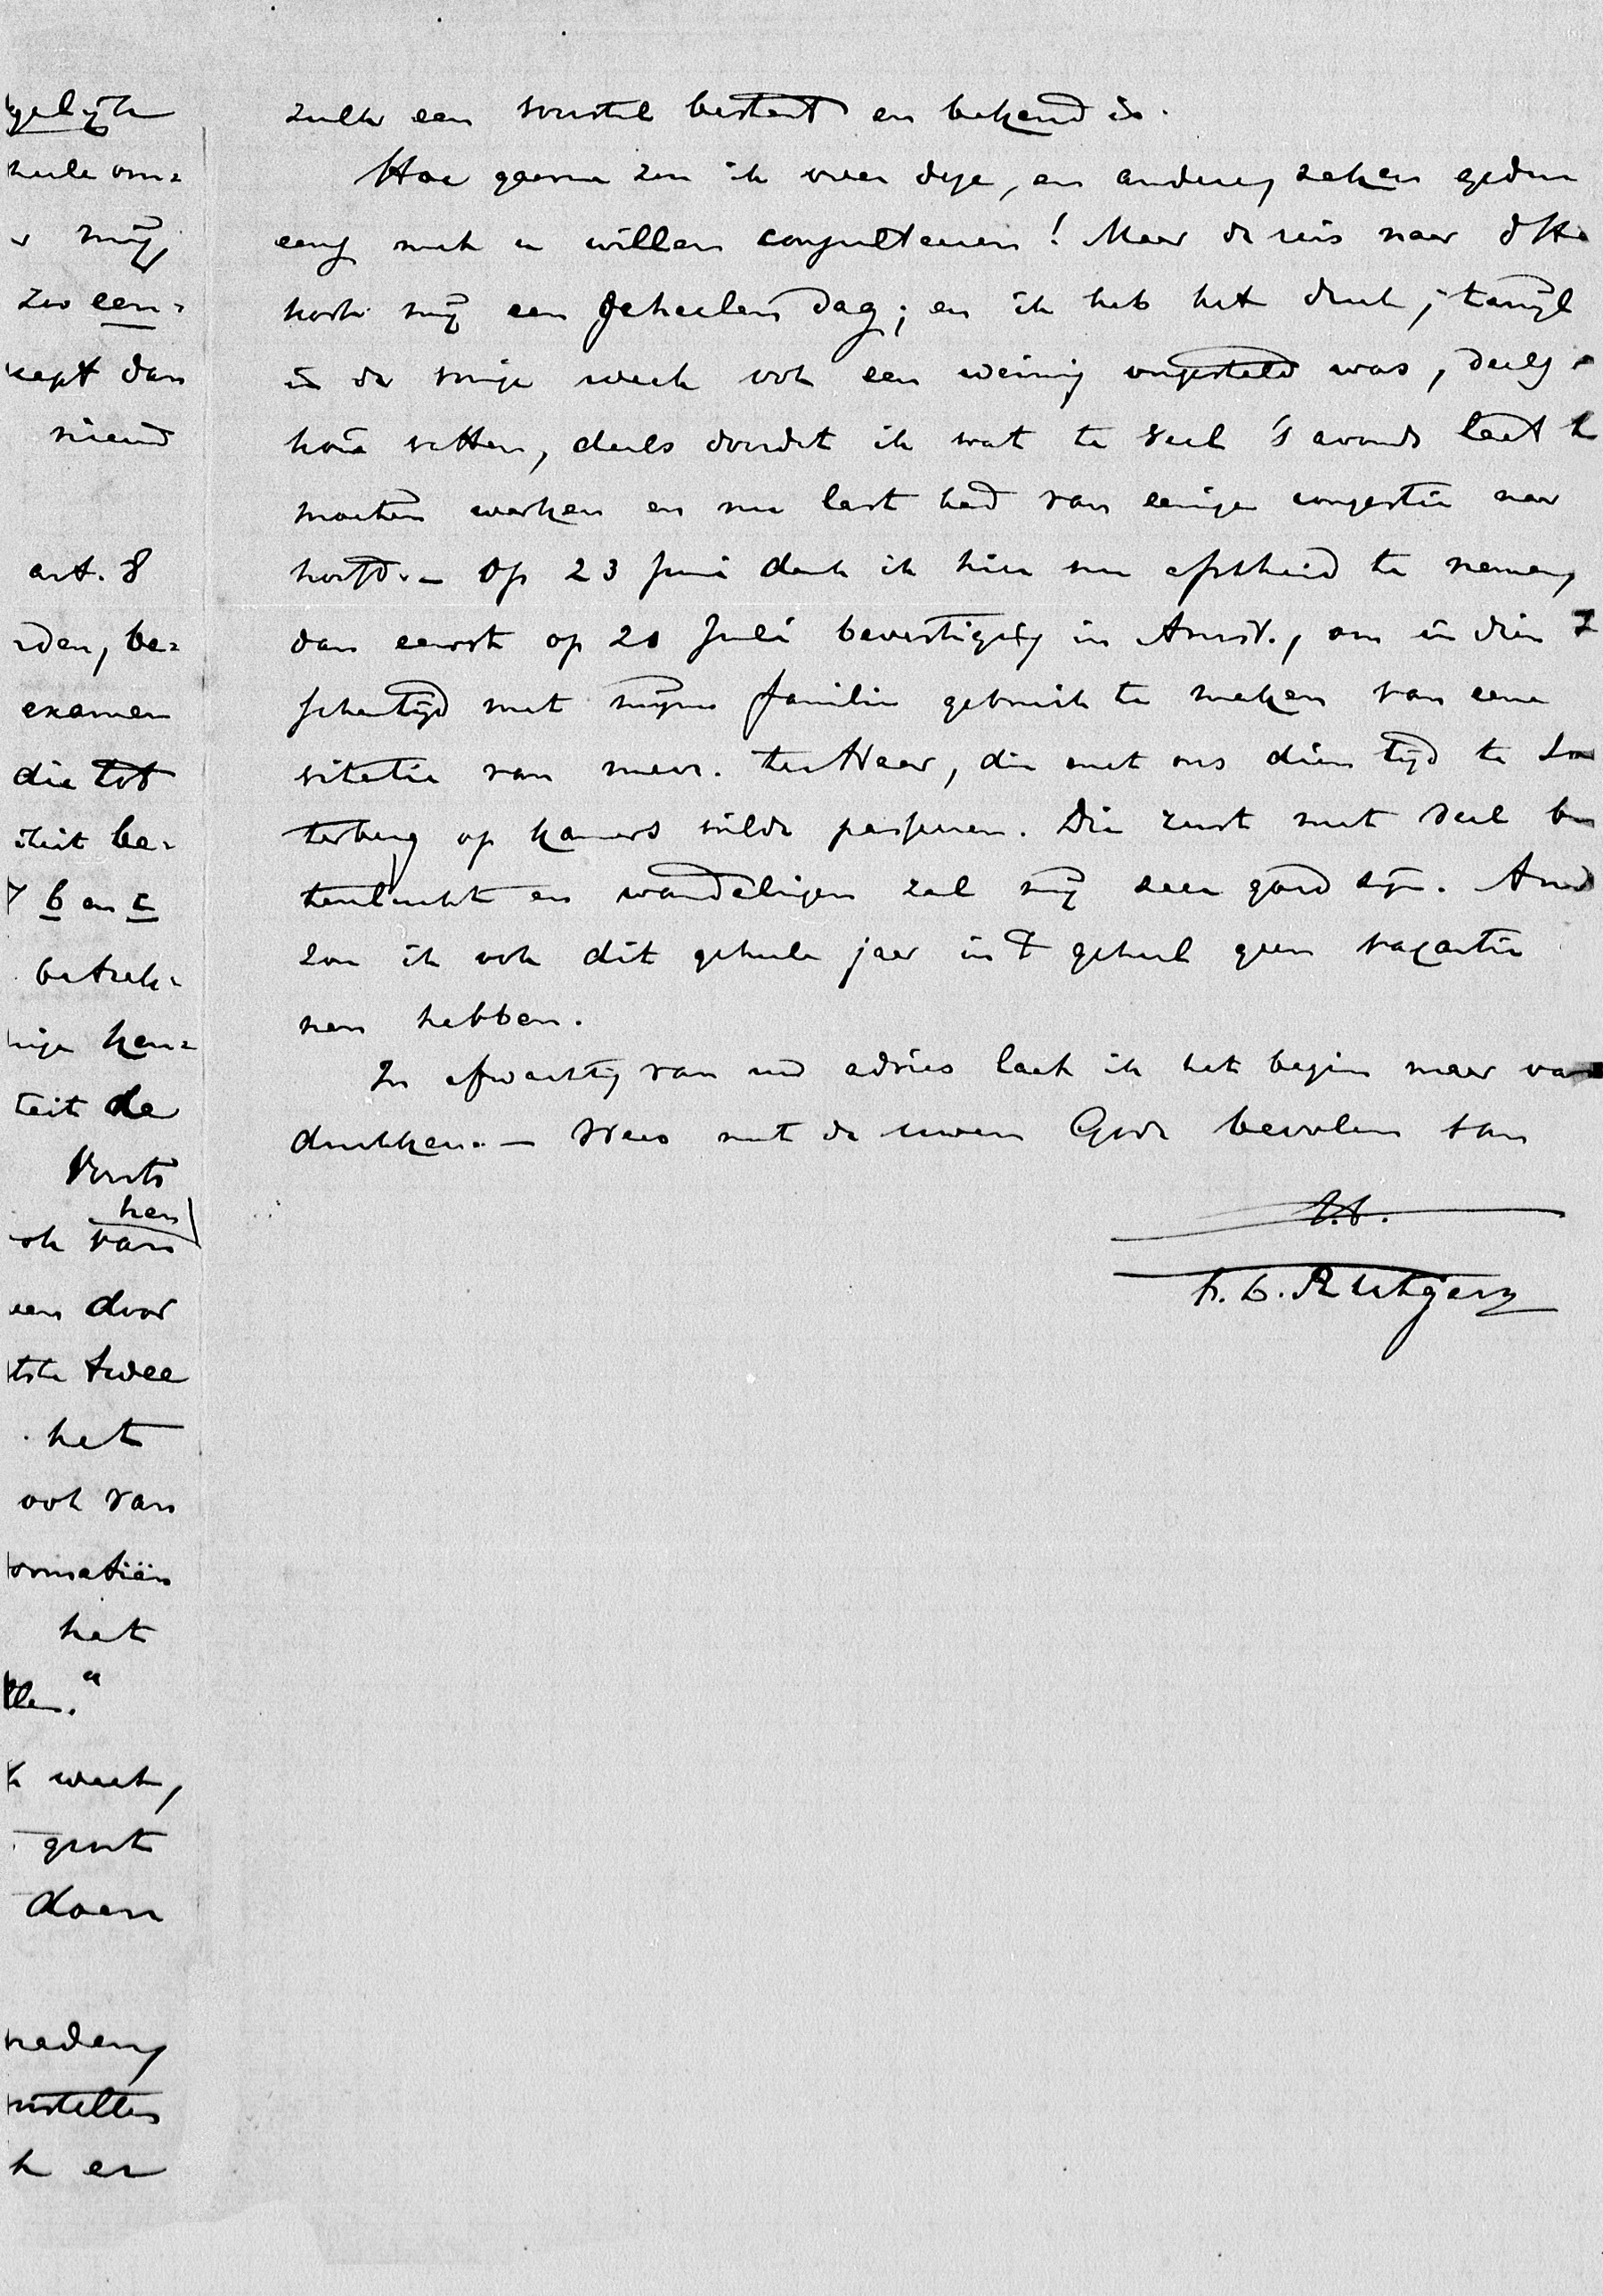 gelijke
heele om=
mij,
zoo een=
dan
niemd
art. 8
rden, be=
examen
die tot
iteit be=
b en c
betrek=
nige ken=
teit de
Voorts
hen
ook van
een door
tste twee
het
ook van
formatiën
het
llen."
k weet,
groote
doen
redenen
nstellen
k er
zulk een voorstel bestaat en bekend is.
Hoe gaarne zou ik over deze, en andere, zaken gedu
eens met u willen consulteeren! Maar de reis naar d Ha
kost mij een geheelen dag; en ik heb het druk; terwijl
ik de vorige week ook een weinig ongesteld was, deels
kou vatten, deels doordat ik wat te veel 's avonds laat h
moeten werken en nu last had van eenige congestie naar
hoofd. – Op 23 Juni denk ik hier nu afscheid te nemen,
dan eerst op 20 Juli bevestiging in Amst., om in dien T
schentijd met mijne familie gebruik te maken van eene
vitatie van mevr. ter Haar, die met ons dien tijd te
terberg op kamers wilde passeeren. Die rust met veel bu
tenlucht en wandelingen zal mij zeer goed zijn. And
zou ik ook dit geheele jaar in 't geheel geen vacantie
nen hebben.
In afwachting van uw advies laat ik het begin maar vast
drukken. – Wees met de uwen Gode bevolen van
t.t.
F. L. Rutgers